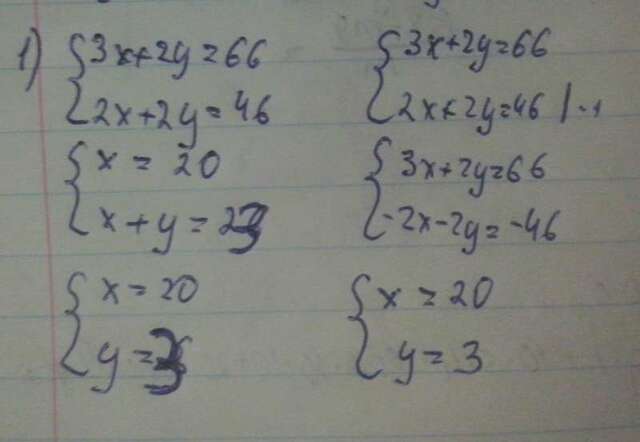 1) 3x+2y=66
2x+2y=46
x=20
x+y=23
x=20
y=3
3x+2y=66
2x+2y=46 |·-1
3x+2y=66
-2x-2y=-46
x=20
y=3